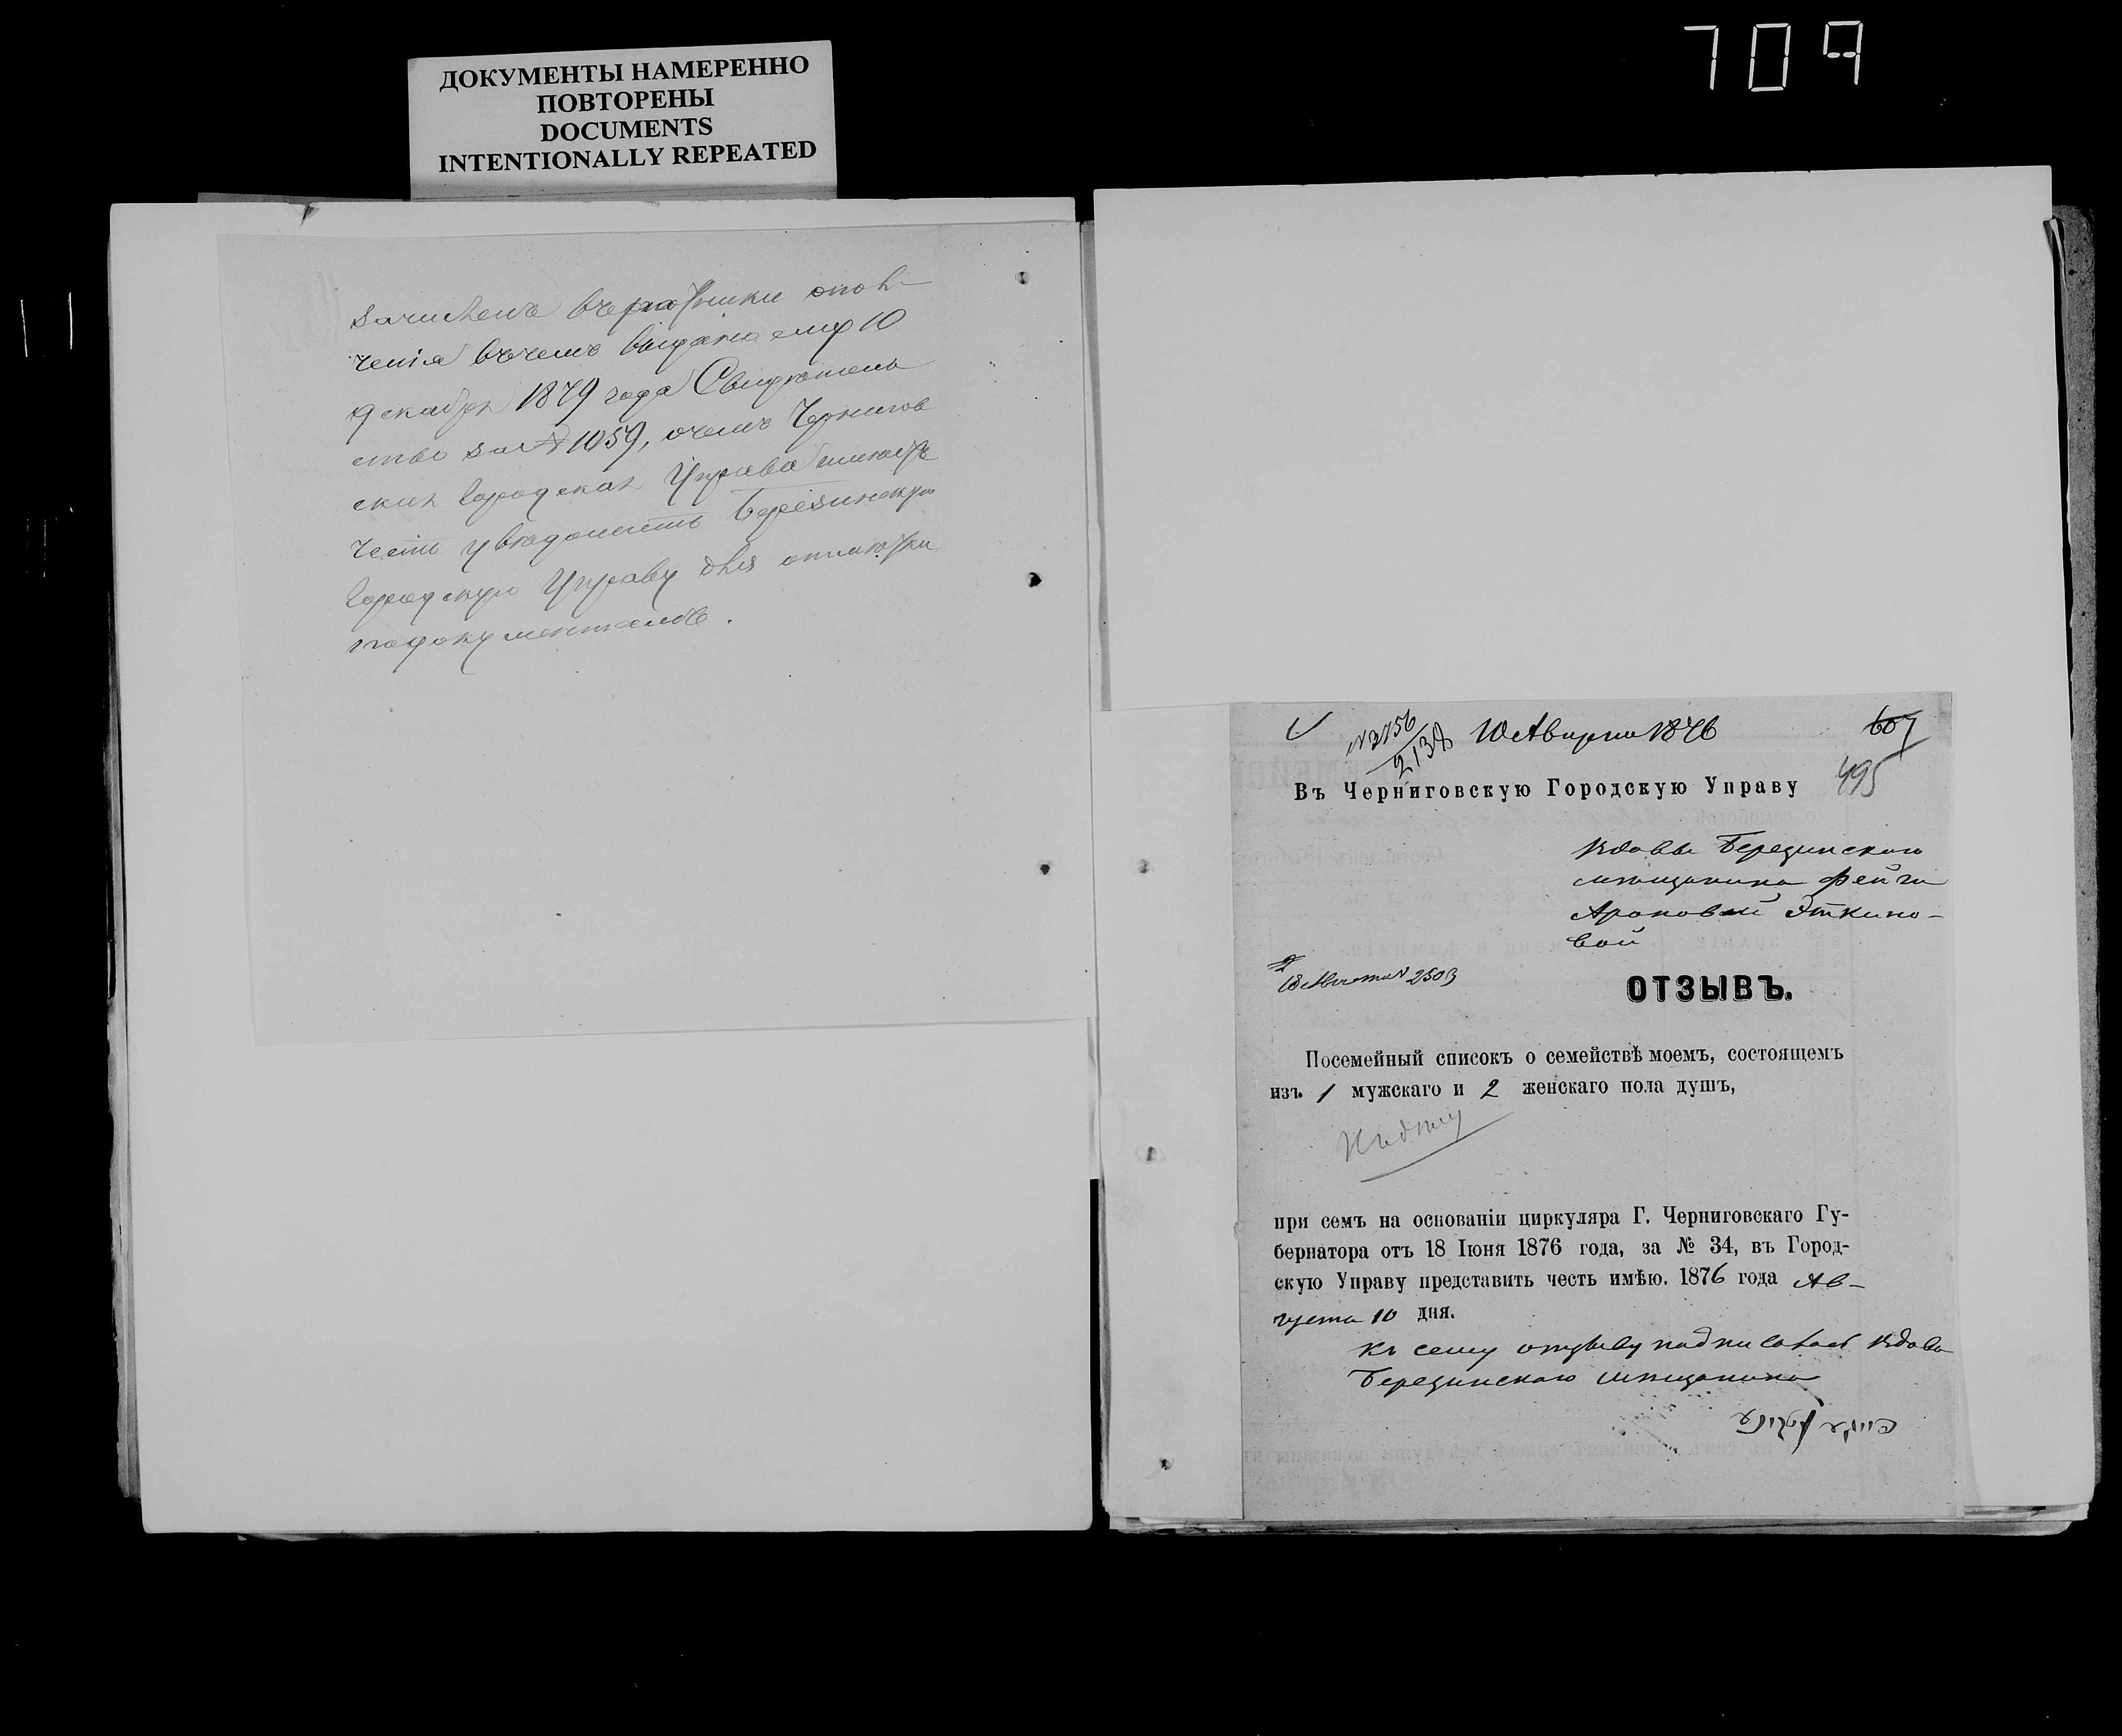 709
ДОКУМЕНТЫ НАМЕРЕННО
ПОВТОРЕНЫ
DOCUMENTS
INTENTIONALLY REPEATED
ченія въ чемъ выдано ему 10
декабря 1879 года Свидѣтель
ство за № 1059, о чемъ Чернигов
ская Городская Управа имѣетъ
честь увѣдомить Березинскую
Городскую Управу для отмѣтки
по документамъ.
№ 2756
2138
10 Августа 1876
607
495
Въ Черниговскую Городскую Управу
Вдовы Березинскаго
мѣщанина Фейги
Ароновой Эткино-
вой
18 Августа № 2503
ОТЗЫВЪ.
Посемейный списокъ о семействѣ моемъ, состоящемъ
изъ 1 мужскаго и 2 женскаго пола душъ,
при семъ на основаніи циркуляра Г. Черниговскаго Гу-
бернатора отъ 18 Іюня 1876 года, за № 34, въ Город-
скую Управу представить честь имѣю. 1876 года Ав-
густа 10 дня.
Къ сему отзыву подписалась вдова
Березинскаго мѣщанина